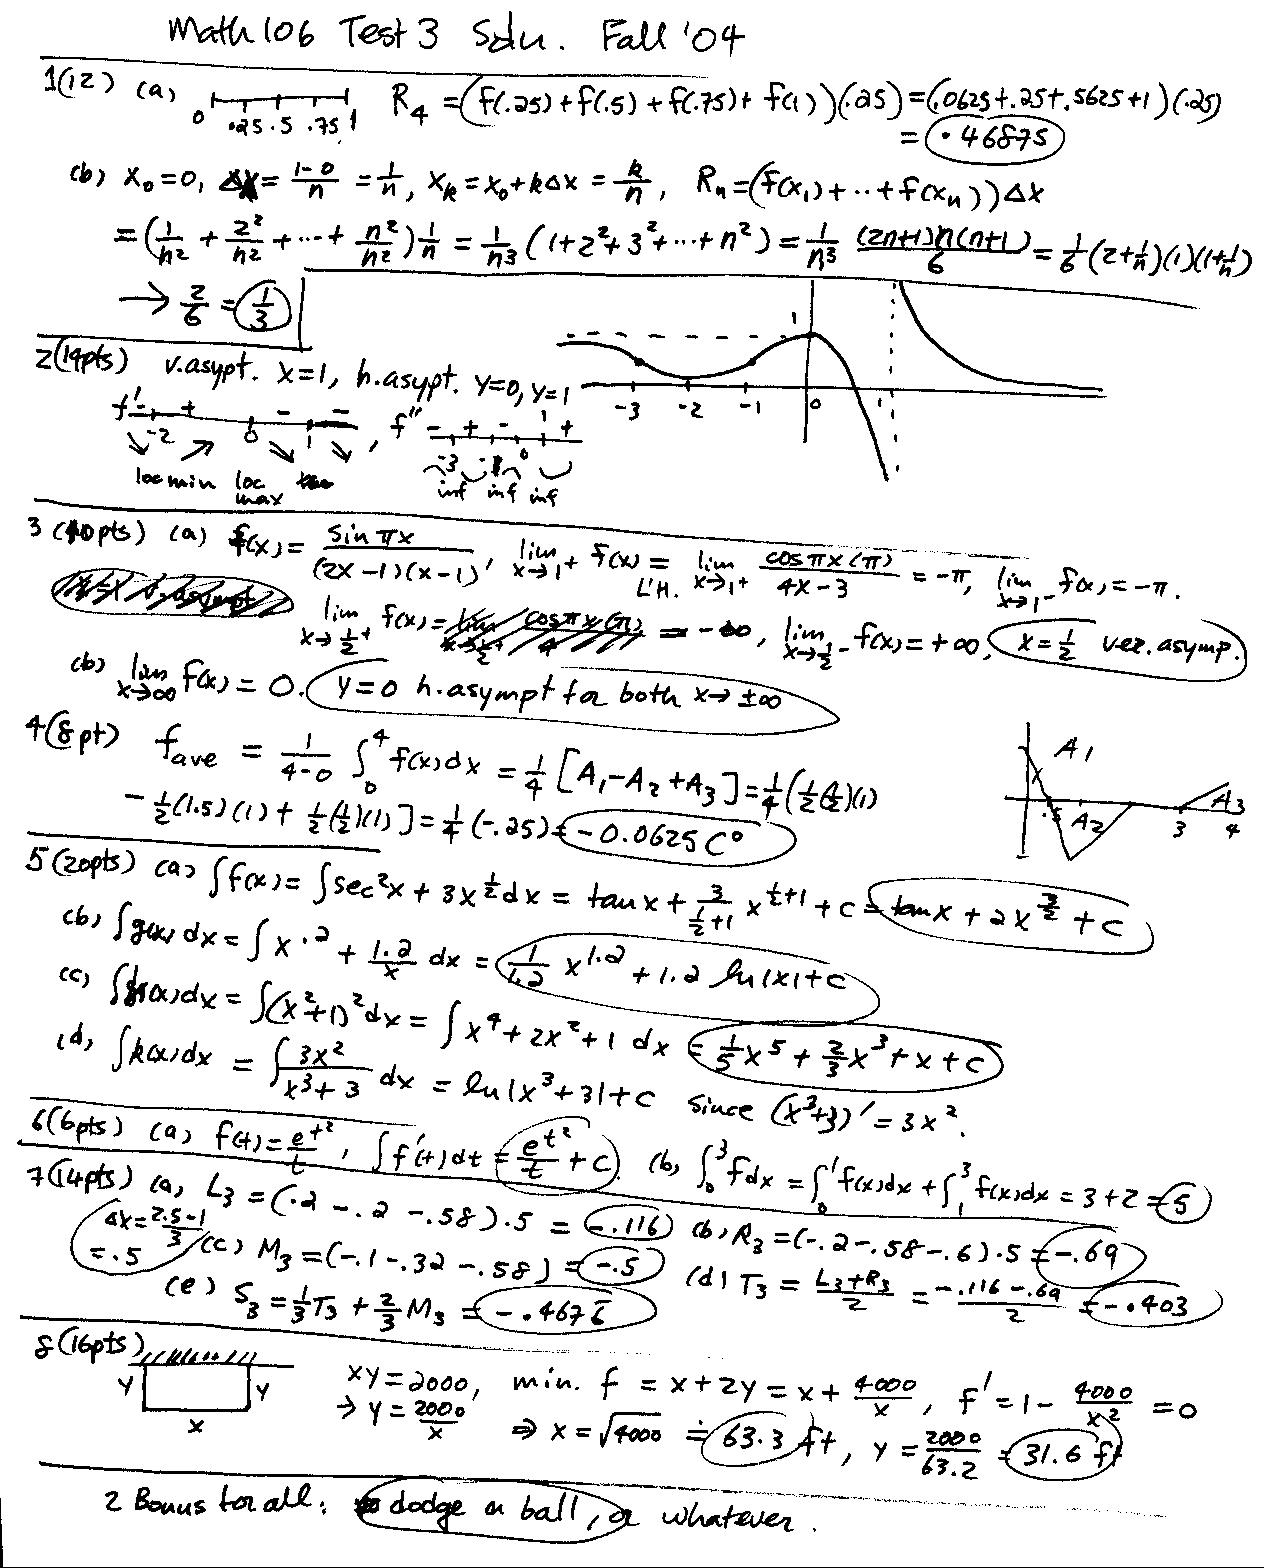 Math 106 Test 3 Soln. Fall '04
1(12) (a) 0 .25 .5 .75 1 R₄ = (f(.25)+f(.5)+f(.75)+f(1))(.25) = (.0625+.25+.5625+1)(.25)
= .46875
(b) x₀=0, Δx = (1-0)/n = 1/n, xₖ=x₀+kΔx = k/n, Rₙ=(f(x₁)+..+f(xₙ))Δx
= (1/n² + 2²/n² + ... + n²/n²) 1/n = 1/n³ (1+2²+3²+...+n²) = 1/n³ (2n+1)n(n+1)/6 = 1/6 (2+1/n)(1)(1+1/n)
→ 2/6 = 1/3
2(14pts) v.asypt. x=1, h.asypt. y=0, y=1
1 -3 -2 -1 0 1
f' - + - - -2 0 1 , f'' - + - + -3 -1 0 1
loc min loc max inf inf inf
3 (10pts) (a) f(x) = sin πx / (2x-1)(x-1), lim x→1⁺ f(x) = L'H. lim x→1⁺ cos πx (π) / 4x-3 = -π, lim x→1⁻ f(x) = -π.
lim x→½⁺ f(x) = -∞, lim x→½⁻ f(x) = +∞, x=½ ver. asymp.
(b) lim x→∞ f(x) = 0. y=0 h.asympt for both x→±∞
4(8pt) f_ave = 1/(4-0) ∫₀⁴ f(x)dx = ¼ [A₁-A₂+A₃] = ¼(½(½)(1)
- ½(1.5)(1) + ½(½)(1)] = ¼(-.25) = -0.0625 C°
A₁ .5 A₂ 3 A₃ 4
5(20pts) (a) ∫f(x) = ∫sec²x + 3x^½ dx = tan x + 3/(½+1) x^(½+1) + c = tan x + 2x^(3/2) + c
(b) ∫g(x)dx = ∫x^.2 + 1.2/x dx = 1/1.2 x^1.2 + 1.2 ln|x| + c
(c) ∫h(x)dx = ∫(x²+1)² dx = ∫x⁴+2x²+1 dx = 1/5 x⁵ + 2/3 x³ + x + c
(d) ∫k(x)dx = ∫ 3x²/(x³+3) dx = ln|x³+3|+c since (x³+3)' = 3x².
6(6pts) (a) f(t) = e^t²/t, ∫f'(t)dt = e^t²/t + c. (b) ∫₀³ f dx = ∫₀¹ f(x)dx + ∫₁³ f(x)dx = 3+2 = 5
7(14pts) (a) L₃ = (.2 - .2 - .58).5 = -.116 (b) R₃ = (-.2-.58-.6).5 = -.69
Δx = (2.5-1)/3 = .5 (c) M₃ = (-.1-.32-.58) = -.5 (d) T₃ = (L₃+R₃)/2 = (-.116-.69)/2 = -.403
(e) S₃ = ⅓T₃ + ⅔M₃ = -.4676̄
8(16pts) y y x xy=2000, min. f = x+2y = x + 4000/x, f' = 1 - 4000/x² = 0
→ y = 2000/x ⇒ x = √4000 ≐ 63.3 ft, y = 2000/63.2 = 31.6 ft
2 Bonus for all: dodge a ball, or whatever.